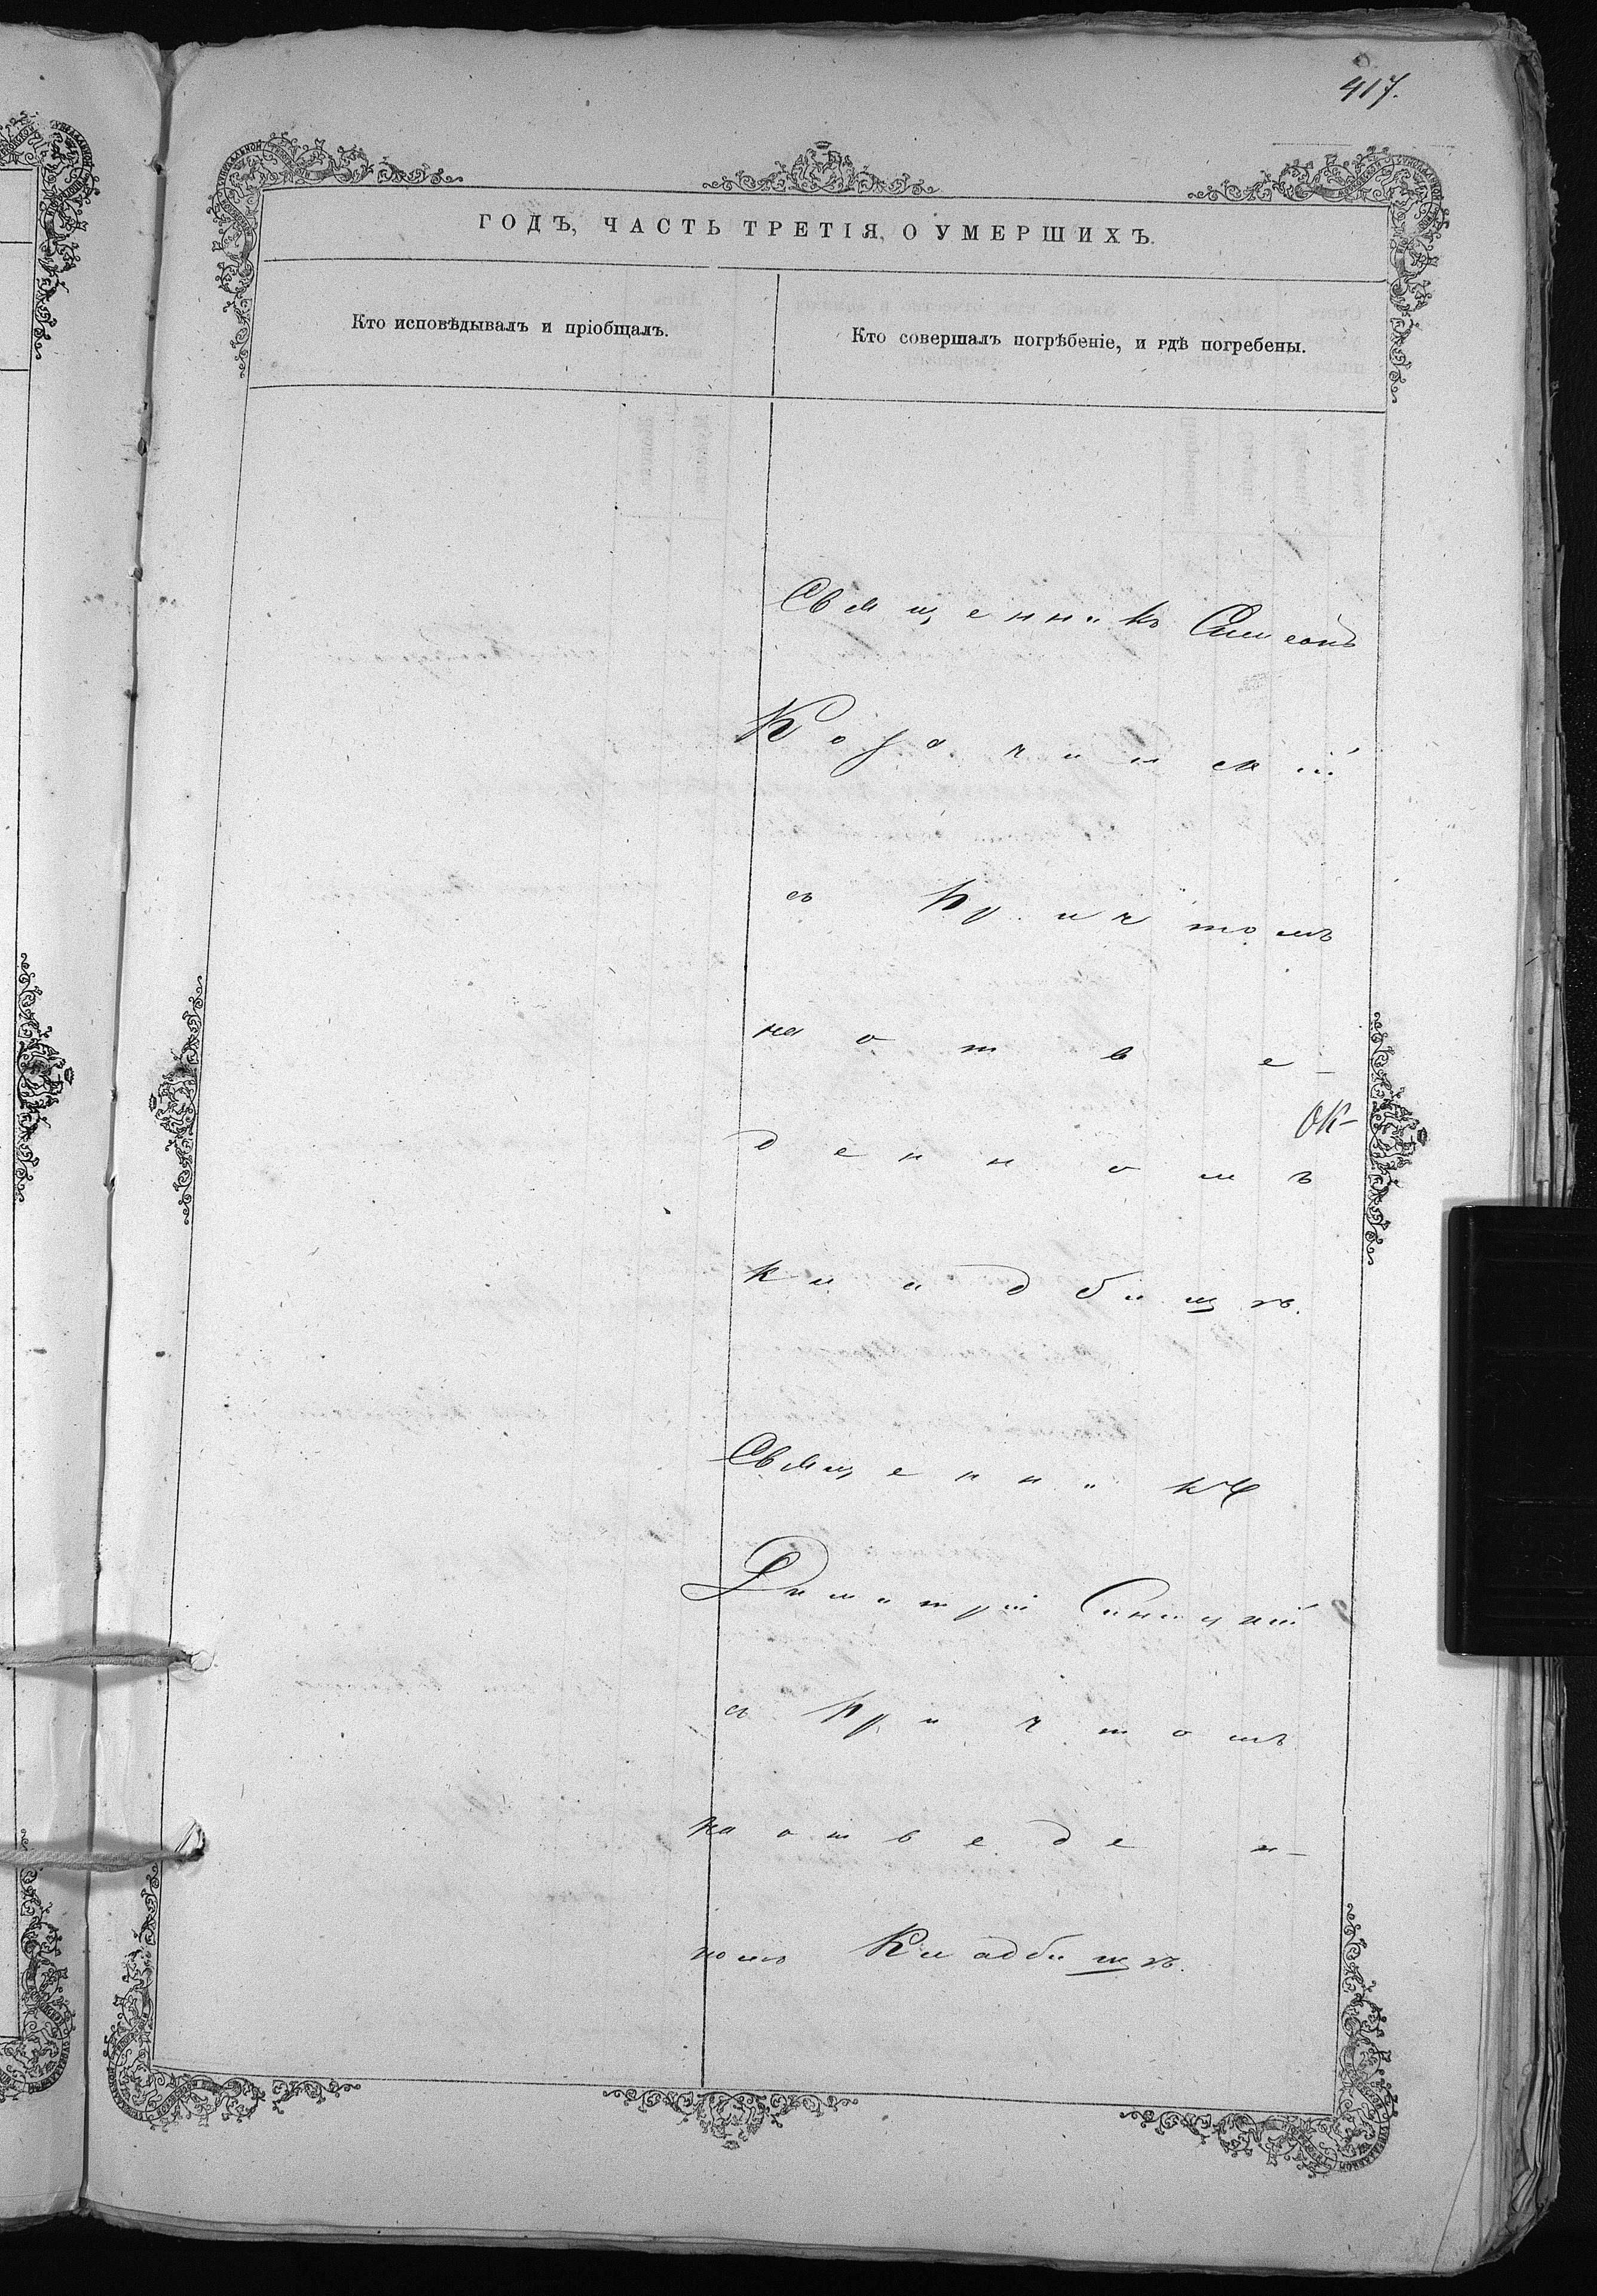 417.
ГОДЪ, ЧАСТЬ ТРЕТІЯ, О УМЕРШИХЪ.
Кто исповѣдывалъ и пріобщалъ.
Кто совершалъ погрѣбеніе, и гдѣ погребены.
Священникъ Симеонъ
съ причтомъ
на отве-
денномъ
кладбищѣ.
Священникъ
Димитрій Синицкій
съ причтомъ
на отведен-
номъ Кладбищѣ.